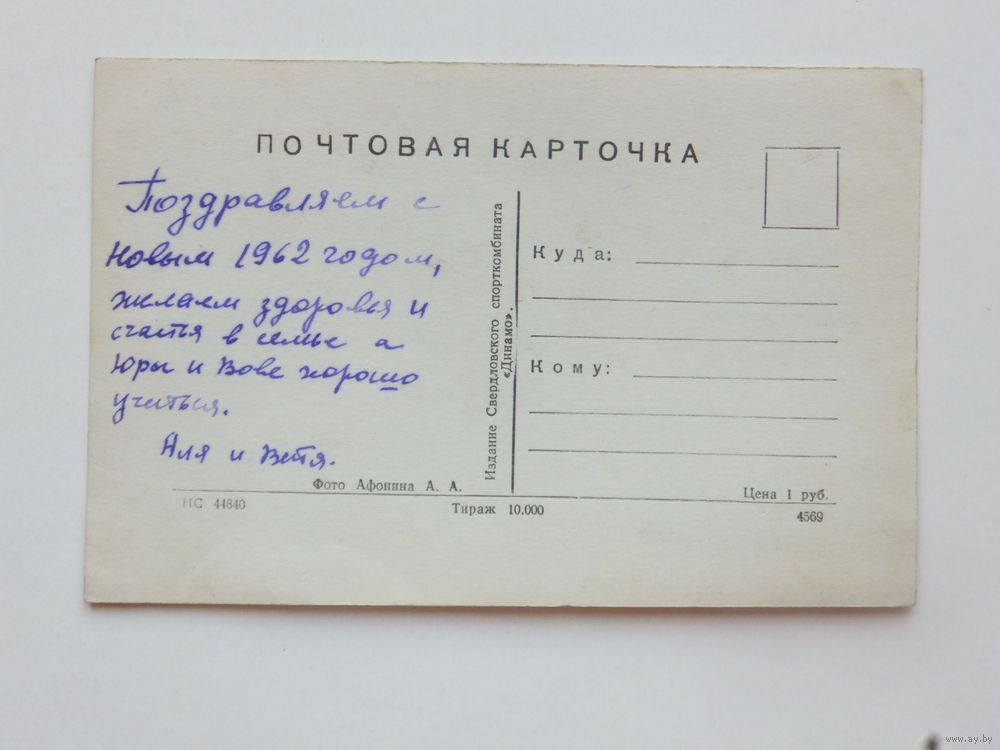 ПОЧТОВАЯ КАРТОЧКА
Поздравляем с
новым 1962 годом,
желаем здоровья и
счастья в семье а
Юры и Вове хорошо
учиться.
Аля и Витя.
Издание Свердловского спорткомбината
«Динамо».
Куда:
Кому:
Фото Афонина А. А.
НС 44840
Тираж 10.000
Цена 1 руб.
4569
www.ay.by